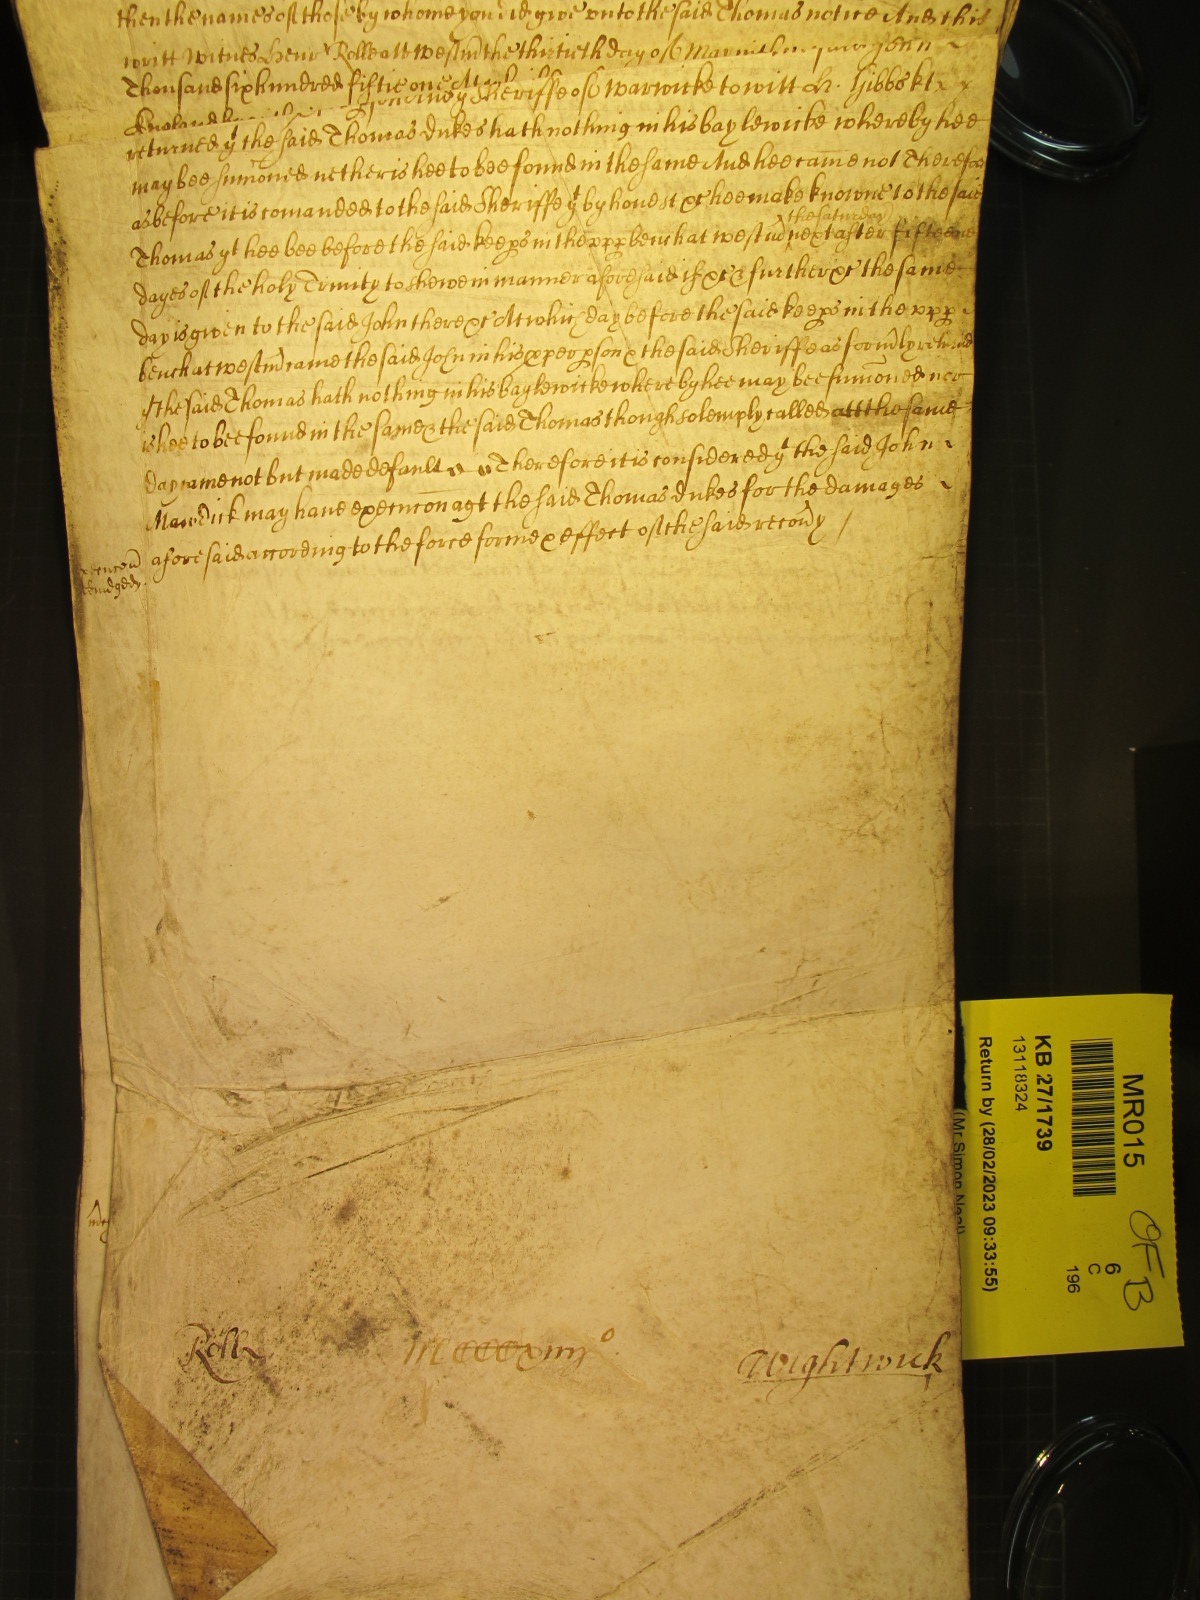 then the names of those by whome you did give unto the said Thomas notice And this
writt Witnes Henr Rolle att Westm the thirtieth day of May in the yeare of our Lord
Thousand six hundred fiftie one At
England Sheriffe of Warwicke to witt H. Gibbs kt
returned yt the said Thomas Dukes hath nothing in his baylewicke whereby hee
may bee sumoned nether is hee to bee found in the same And hee came not Therefore
as before it is comanded to the said Sheriffe yt by honest &c hee make knowne to the said
the saturday
Thomas yt hee bee before the said keeps in the upp bench at westm next after fifteene
dayes of the holy Trinity to shewe in manner aforesaid if &c & further &c the same
day is given to the said John there &c At which day before the said keeps in the upp
bench at westm came the said John in his p per pson & the said Sheriffe as formly retnd
yt the said Thomas hath nothing in his baylewicke whereby hee may bee sumoned nor
is hee to bee found in the same & the said Thomas though solemply called att the same
day came not but made default Therefore it is considered yt the said John
Mawdick may have execucon agt the said Thomas Dukes for the damages
aforesaid according to the force forme & effect of the said recovy
Rolle
mccccxiiii o
Wightwick
MR015
KB 27/1739
13118324
Return by (28/02/2023 09:33:55)
(Mr Simon Neal)
6
C
196
OFB